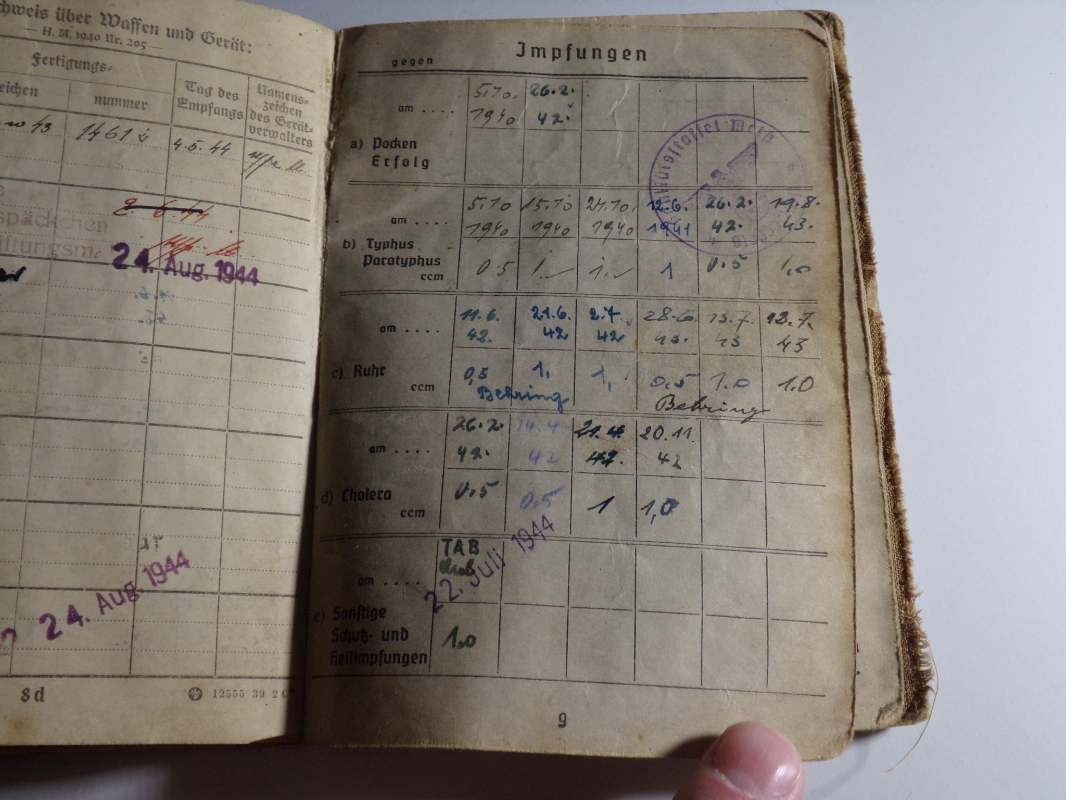 hweis über Waffen und Gerät:
— H. M. 1940 Nr. 205 —
Fertigungs-
eichen
nummer
Tag des
Empfangs
Namens-
zeichen
des Gerät-
verwalters
43
1461
4.5.44
späckenen
ftungsm
24. Aug. 1944
24. Aug. 1944
8d
12555 39 2 C
gegen Impfungen
am . . . . 5.10. 26.2.
1940 42.
a) Pocken
Erfolg
am . . . . 5.10 15.10 24.10. 12.6. 26.2. 19.8.
1940 1940 1940 1941 42. 43.
b) Typhus
Paratyphus
ccm 0.5 1. 1. 1 0.5 1.0
am . . . . 11.6. 21.6. 2.7. 28.6 13.7. 13.7.
42. 42 42 43. 43 43
c) Ruhr
ccm 0,5 1, 1, 0,5 1.0 1.0
Behring Behring
am . . . . 26.2. 14.4. 21.4 20.11
42. 42 42. 42
d) Cholera
ccm 0.5 0.5 1 1,0
TAB
am . . . . 22. Juli 1944
e) Sonstige
Schutz- und
Heilimpfungen 1.0
9